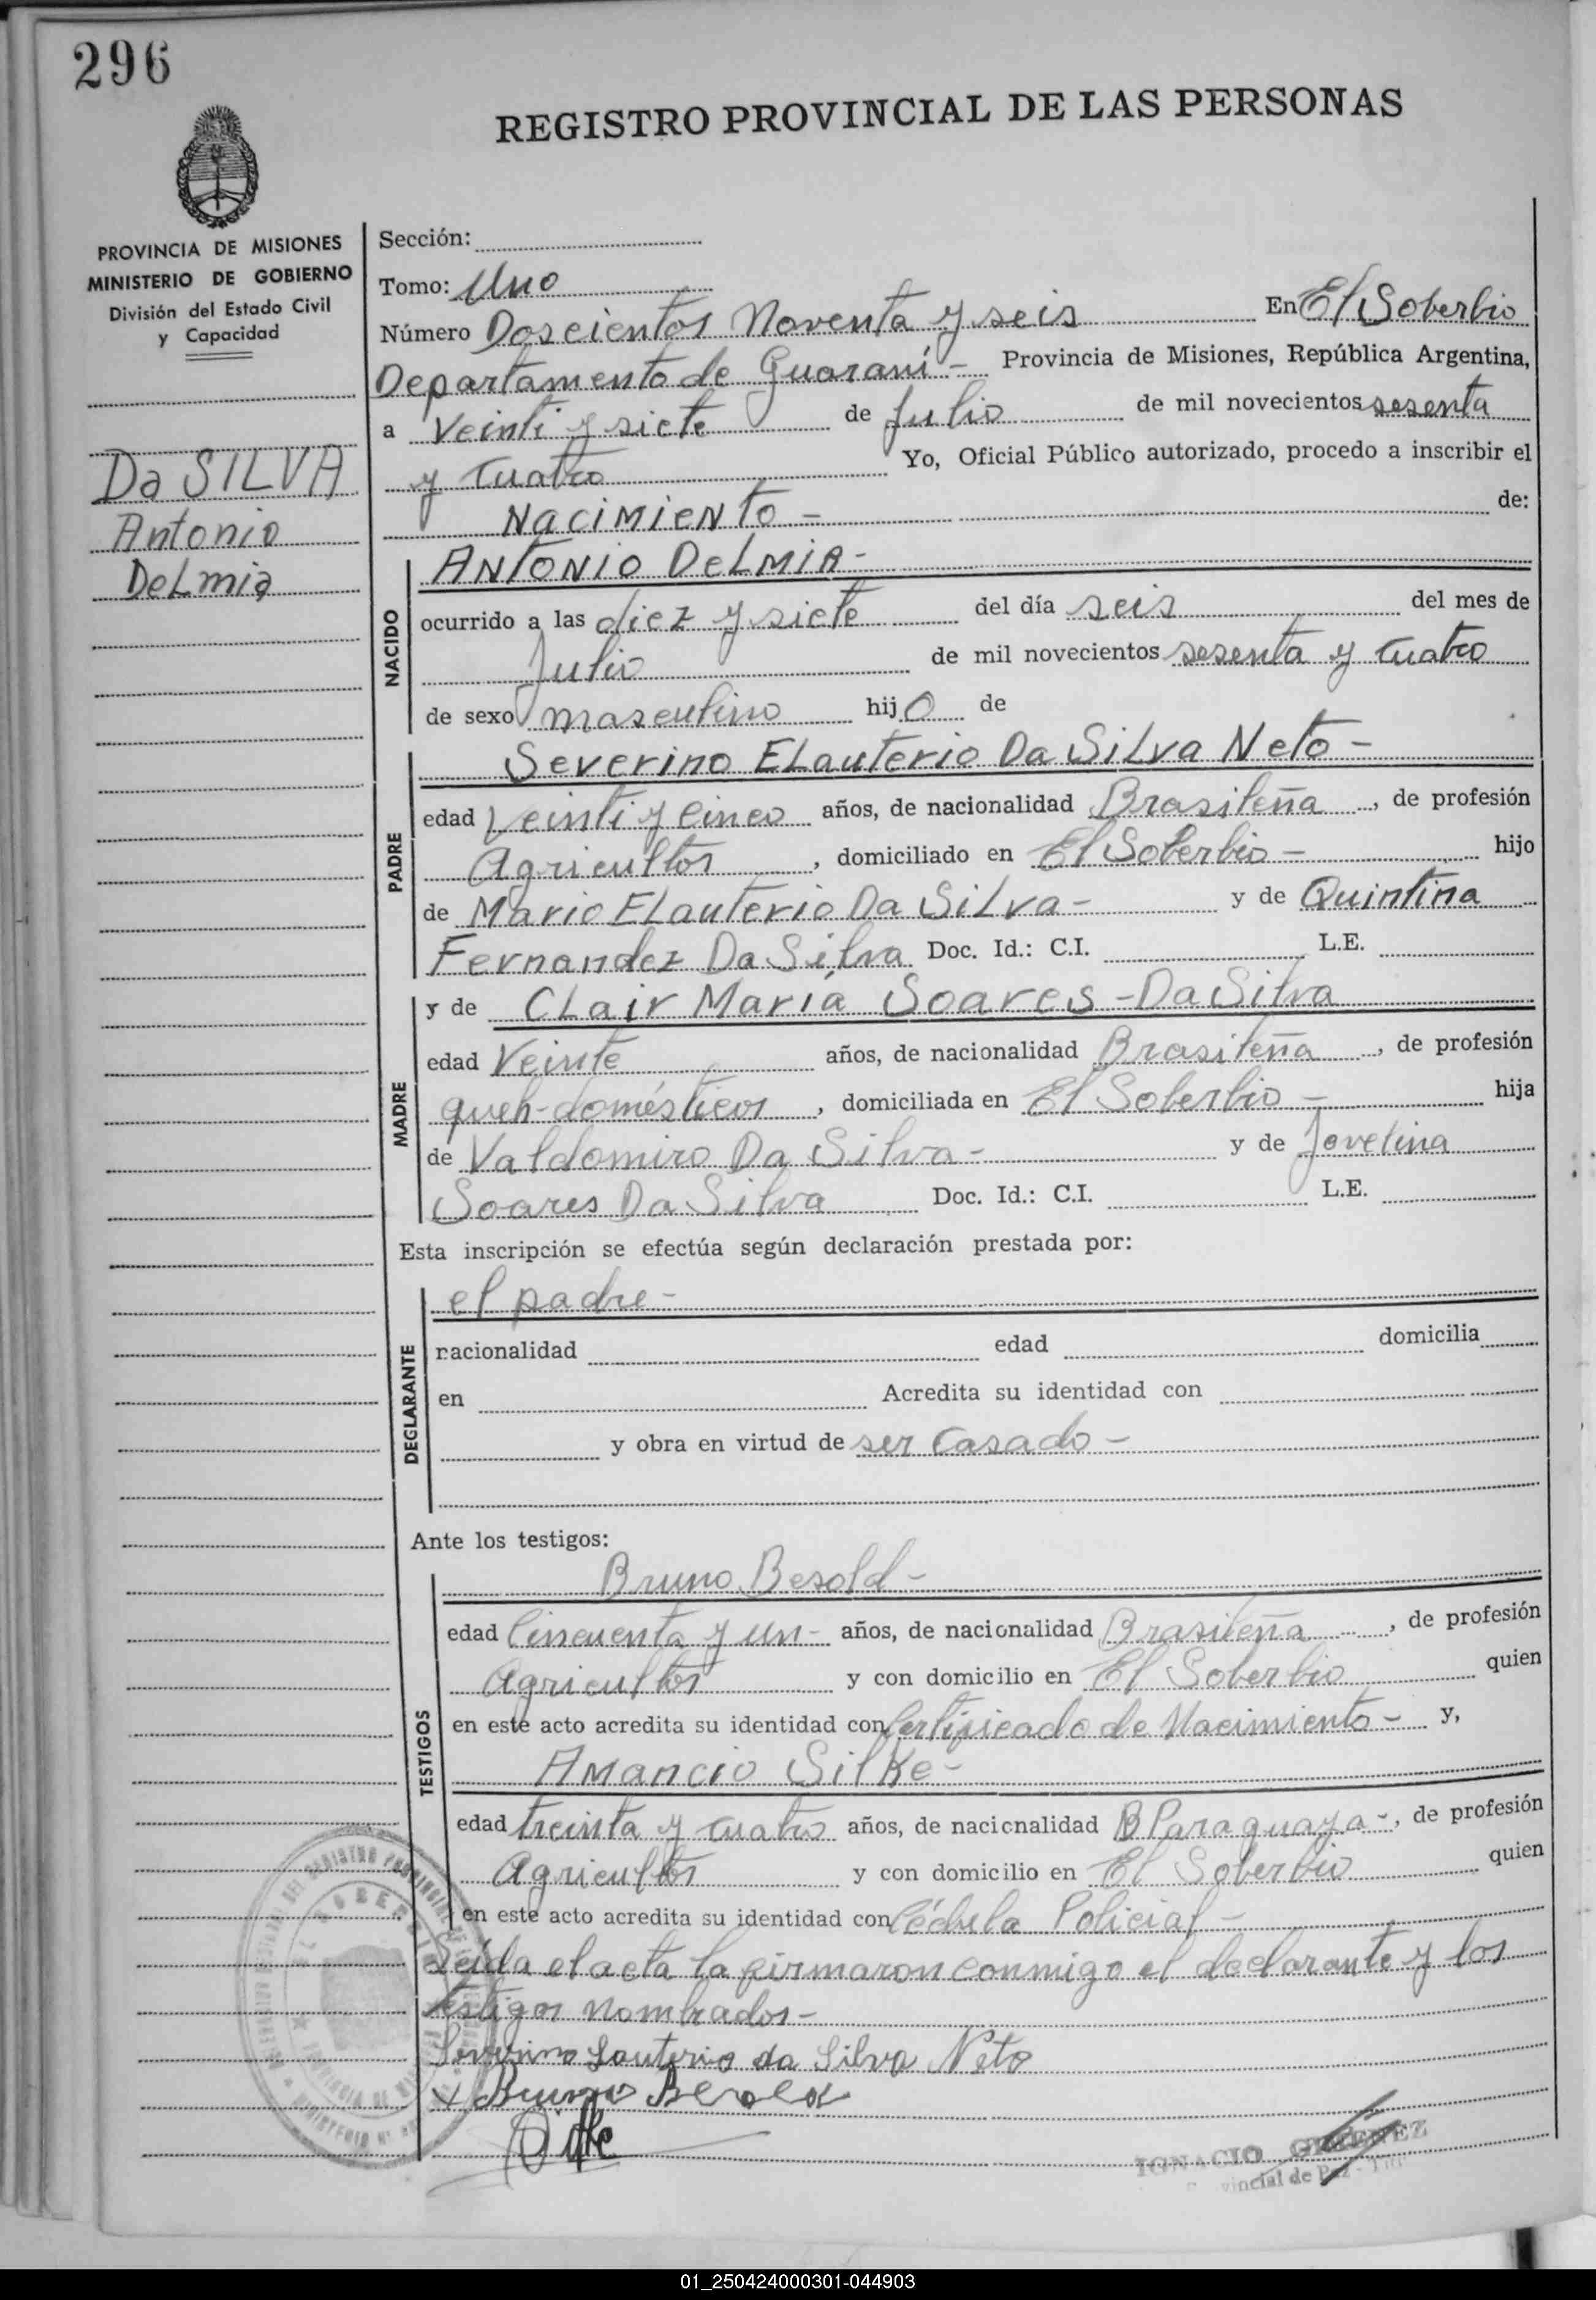 296
REGISTRO PROVINCIAL DE LAS PERSONAS
PROVINCIA DE MISIONES
MINISTERIO DE GOBIERNO
División del Estado Civil
y Capacidad
Da SILVA
Antonio
Delmia
Sección:
Tomo: Uno
Número Doscientos Noventa y seis En El Soberbio
Departamento de Guaraní - Provincia de Misiones, República Argentina,
a Veinti y siete de Julio de mil novecientos sesenta
y cuatro Yo, Oficial Público autorizado, procedo a inscribir el
Nacimiento - de:
NACIDO
ANTONIO DELMIA -
ocurrido a las diez y siete del día seis del mes de
Julio de mil novecientos sesenta y cuatro
de sexo masculino hijo de
PADRE
Severino ELauterio Da Silva Neto -
edad Veinti y cinco años, de nacionalidad Brasileña, de profesión
Agricultor, domiciliado en El Soberbio - hijo
de Mario ELauterio Da Silva - y de Quintina
Fernandez Da Silva Doc. Id.: C.I. L.E.
MADRE
y de CLair María Soares - Da Silva
edad Veinte años, de nacionalidad Brasileña, de profesión
queh-domésticos, domiciliada en El Soberbio - hija
de Valdomiro Da Silva - y de Jovelina
Soares Da Silva Doc. Id.: C.I. L.E.
Esta inscripción se efectúa según declaración prestada por:
DECLARANTE
el padre -
nacionalidad edad domicilia
en Acredita su identidad con
y obra en virtud de ser casado -
Ante los testigos:
TESTIGOS
Bruno Besold -
edad Cincuenta y un - años, de nacionalidad Brasileña, de profesión
Agricultor y con domicilio en El Soberbio quien
en este acto acredita su identidad con Certificado de Nacimiento - y,
Amancio Silke -
edad treinta y cuatro años, de nacionalidad B Paraguaya -, de profesión
Agricultor y con domicilio en El Soberbio quien
en este acto acredita su identidad con Cédula Policial -
Leída el acta la firmaron conmigo el declarante y los
testigos nombrados -
Severino Lauterio da Silva Neto
Bruno Besold
IGNACIO GIMENEZ
de Paz
01_250424000301-044903